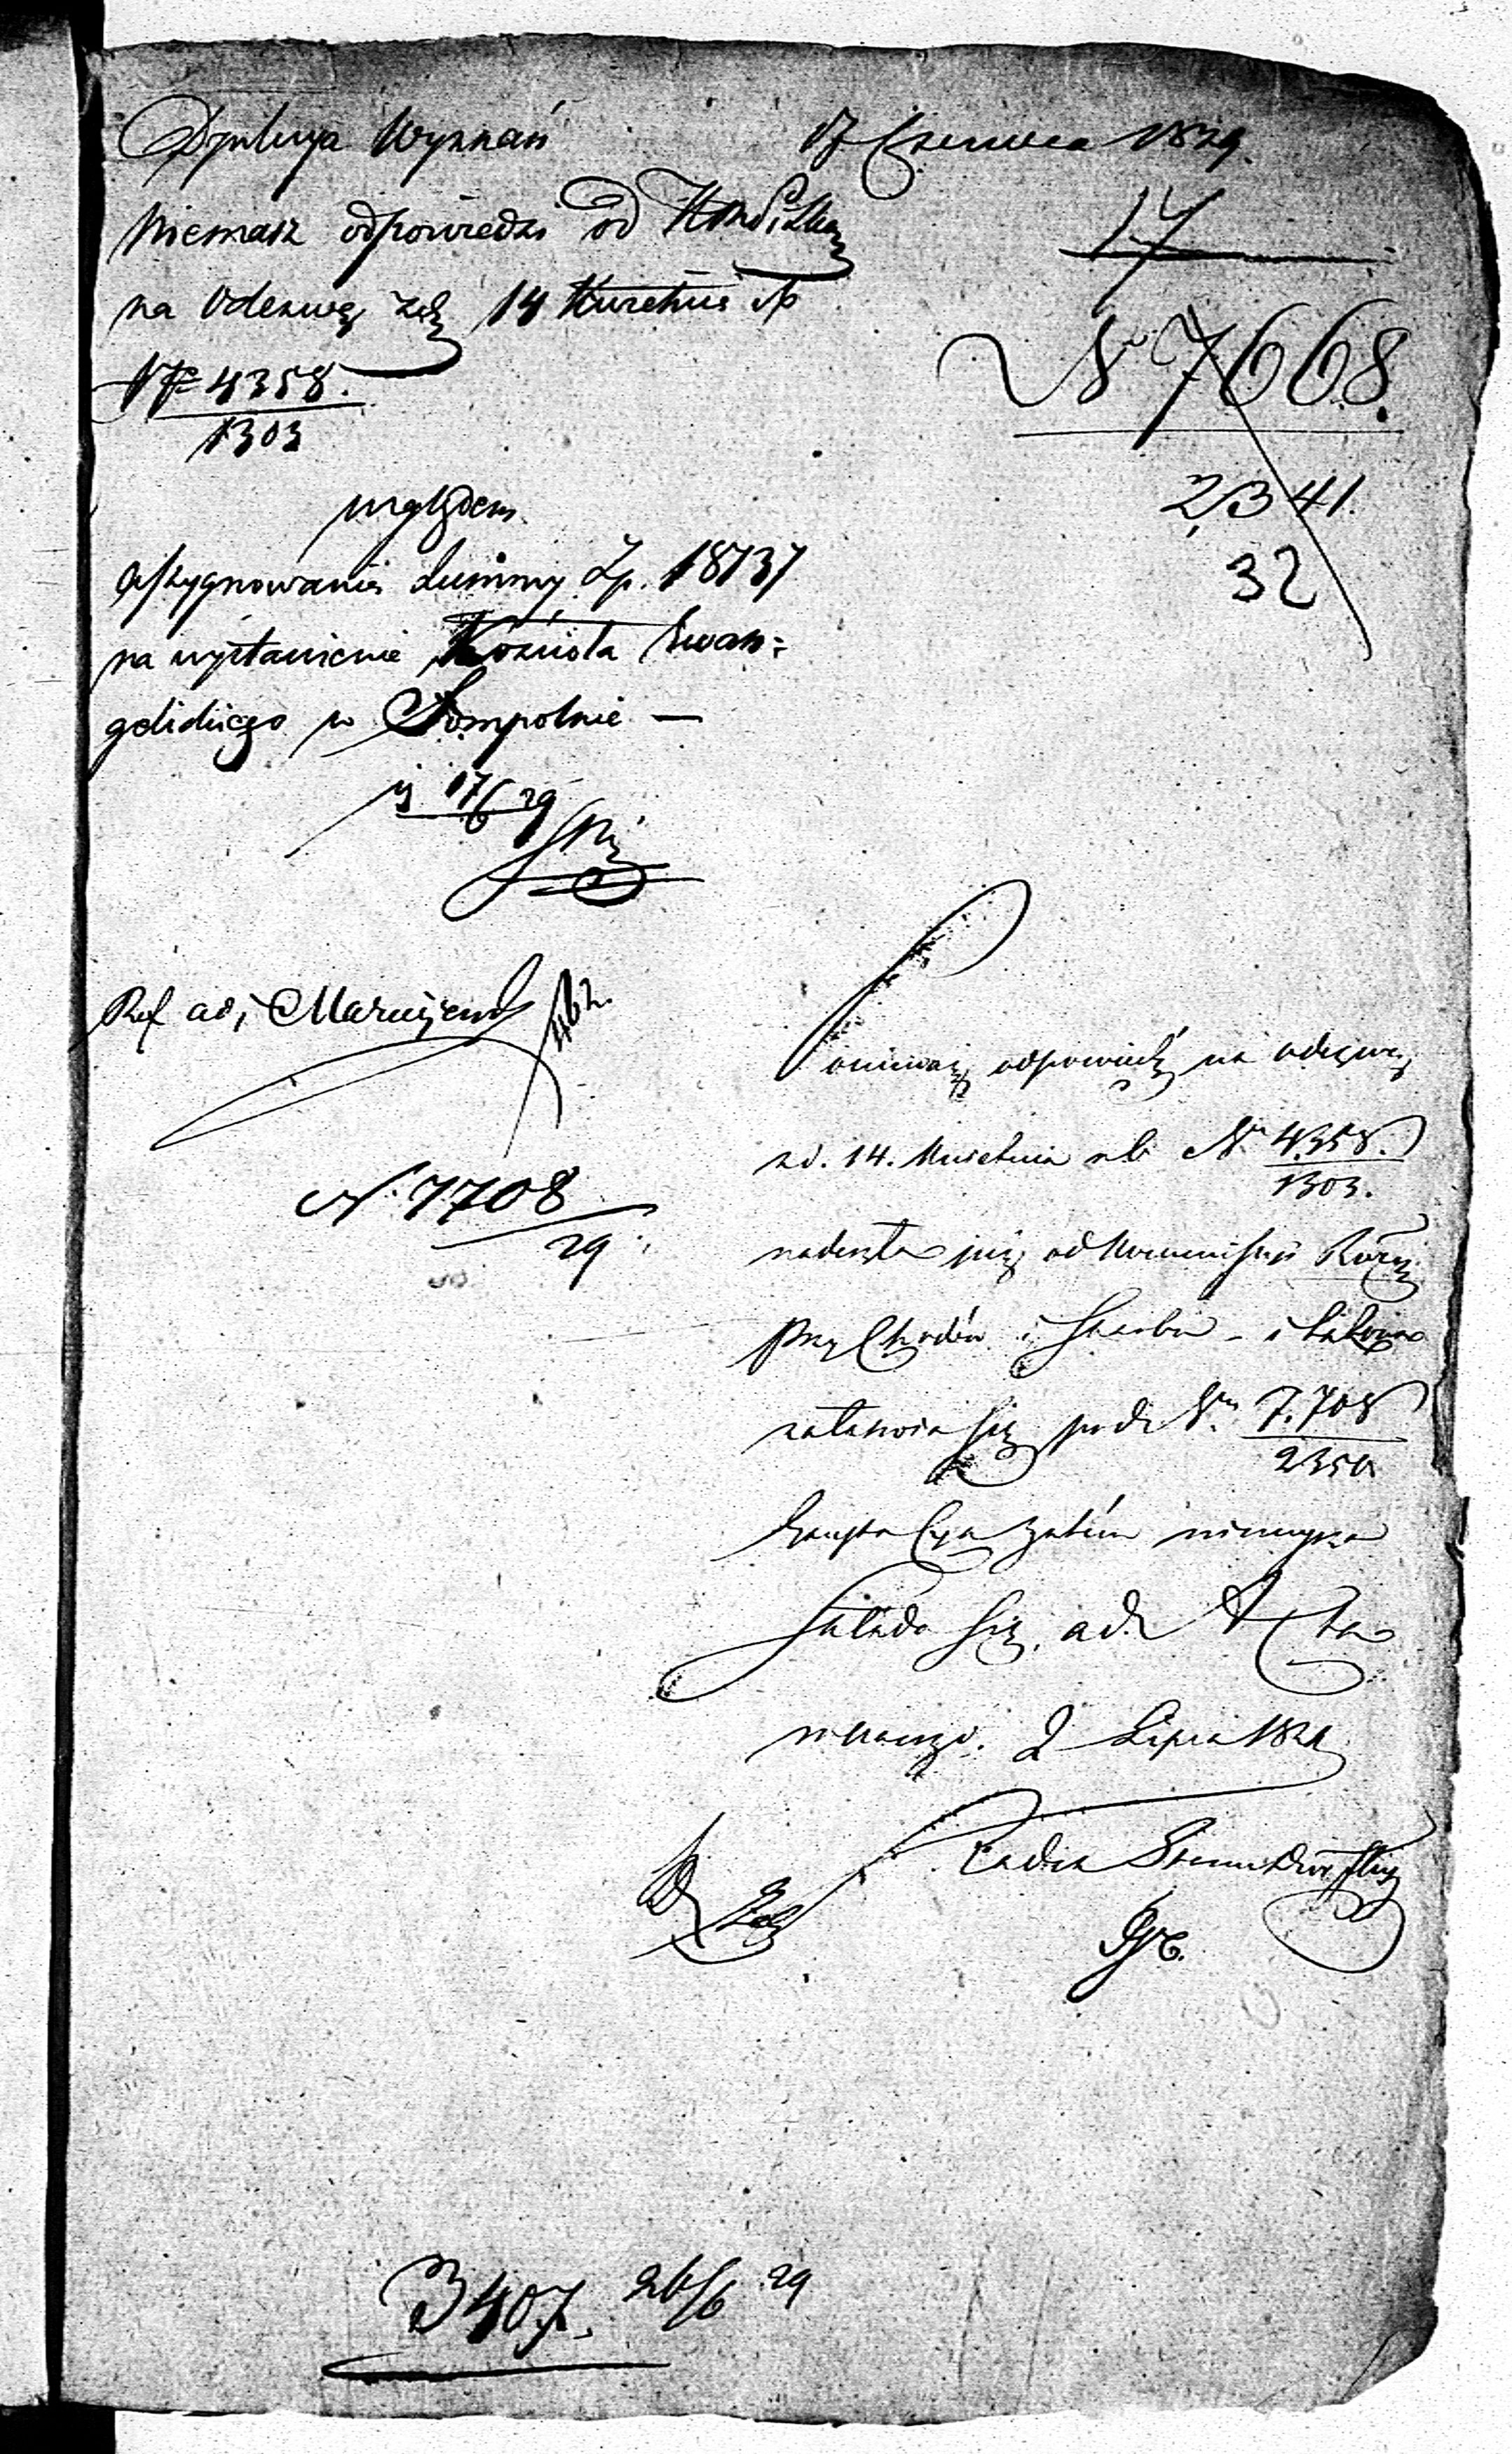 Dyrekcya Wyznań
17 Czerwca 1829.
Niemasz odpowiedzi od
na Odezwę z d. 14 Kwietnia
N° 4358.
1303
17
N 7668.
2341.
32
względem
assygnowania Summy Zp. 18737
na wystawienie Kościoła Ewan=
gelickiego w Sompolnie —
17/6 29
Ref adj
N. 7708
29
Ponieważ odpowiedź na odezwę
z d. 14. Kwietnia r. b. Nr 4358.
1303.
nadeszła już od Kommissyi Rządz.
Przych. dów i Skarbu - i takowa
załatwia się pod Nr 7.708
2350
zatém niniejsza
składa się ad Acta
w Warsza. 2 Lipca 1829
Radca Stanu
3407. 26/6 29